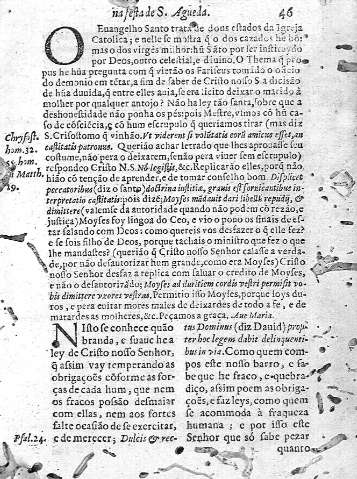 na festa de S. Agueda. 46
O Euangelho Santo trata de dous estados da Igreja
Catolica; e nelle se mostra q̃ o dos cazados he bõ
mas o dos virgẽs milhor hũ Sãto por ser instituydo
por Deos, outro celestial, e diuino. O Thema q̃ pro
pus he hũa pregunta com q̃ vierão os Fariseus tomado o oficio
do demonio em tẽtar, a sim de saber de Cristo nosso S.a decizão
de hũa duuida, q̃ entre elles auia, se era licito deixar o marido â
molher por qualquer antojo? Não ha ley tão santa, sobre que a
deshonestidade não ponha os pés: pois Mestre, vimos cõ hũ ca-
so de cõsciẽcia, e cõ hum escrupulo q̃ queriamos tirar (mas diz
S. Crisostomo q̃ vinhão. Vt viderent si voluntatis eorũ amicus esset, an
castitatis patronus. Querião achar letrado que lhes aprouasse seu
costume, não pera o deixarem, senão pera viuer sem escrupulo)
respondeo Cristo N.S. Nõ legistis, &c. Replicarão elles, porq̃ não
hião cõ tenção de aprender, e de tomar conselho bom Displicet
peccatoribus (diz o santo) doctrina iustitiæ, grauis est fornicantibus in-
terpretatio castitatis: pois dize; Moyses mãdauit dari libellũ repudij, &
dimittere (valemse da autoridade quando não podem cõ rezão, e
justiça) Moyses foy lingoa do Ceo, e vio o pouo os sinais de es-
tar falando com Deos: como quereis vos desfazer o q̃ elle fez?
e se sois filho de Deos, porque tachais o ministro que fez o que
lhe mandastes? (querião q̃ Cristo nosso Senhor calasse a verda-
de, por não desautorizar hum grande, como era Moyses) Cristo
nosso Senhor desfaz a replica com saluar o credito de Moyses,
e não o desautorizãdo; Moyses ad duritiem cordis vestri permisit vo-
bis dimittere vxores vestras. Permitio isso Moyses, porque soys du-
ros, e pera euitar mores males de deixardes de todo a fè, e de
matardes as molheres, &c. Peçamos a graça, Aue Maria.
Chrysost.
hom. 32.
Matth.
19.
NIsto se conhece quão
branda, e suaue he a
ley de Cristo nosso Senhor,
q̃ assim vay temperando as
obrigações cõforme as for-
ças de cada hum, que nem
os fracos possão desmaiar
com ellas, nem aos fortes
falte ocasião de se exercitar,
e de merecer; Dulcis & rec-
Psal. 24.
tus Dominus (diz Dauid) prop-
ter hoc legem dabit delinquenti-
bus in via. Como quem com-
pos este nosso barro, e sa-
be que he fraco, e quebra-
diço, assim poem as obriga-
ções, e faz leys, como quem
se acommoda â fraqueza
humana; e por isso este
Senhor que sò sabe pezar
quanto